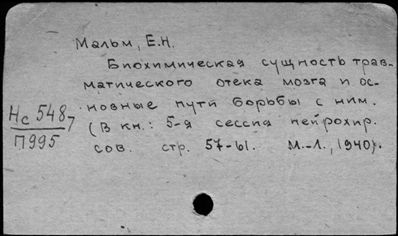 Мальм, Е.Н.
Биохимическая сущность трав-
матического отека мозга и ос-
новные пути борьбы с ним.
(В кн.: 5-я сессия нейрохир.
сов. стр. 57-61. М.-Л., 1940).
Нс 5487
П995